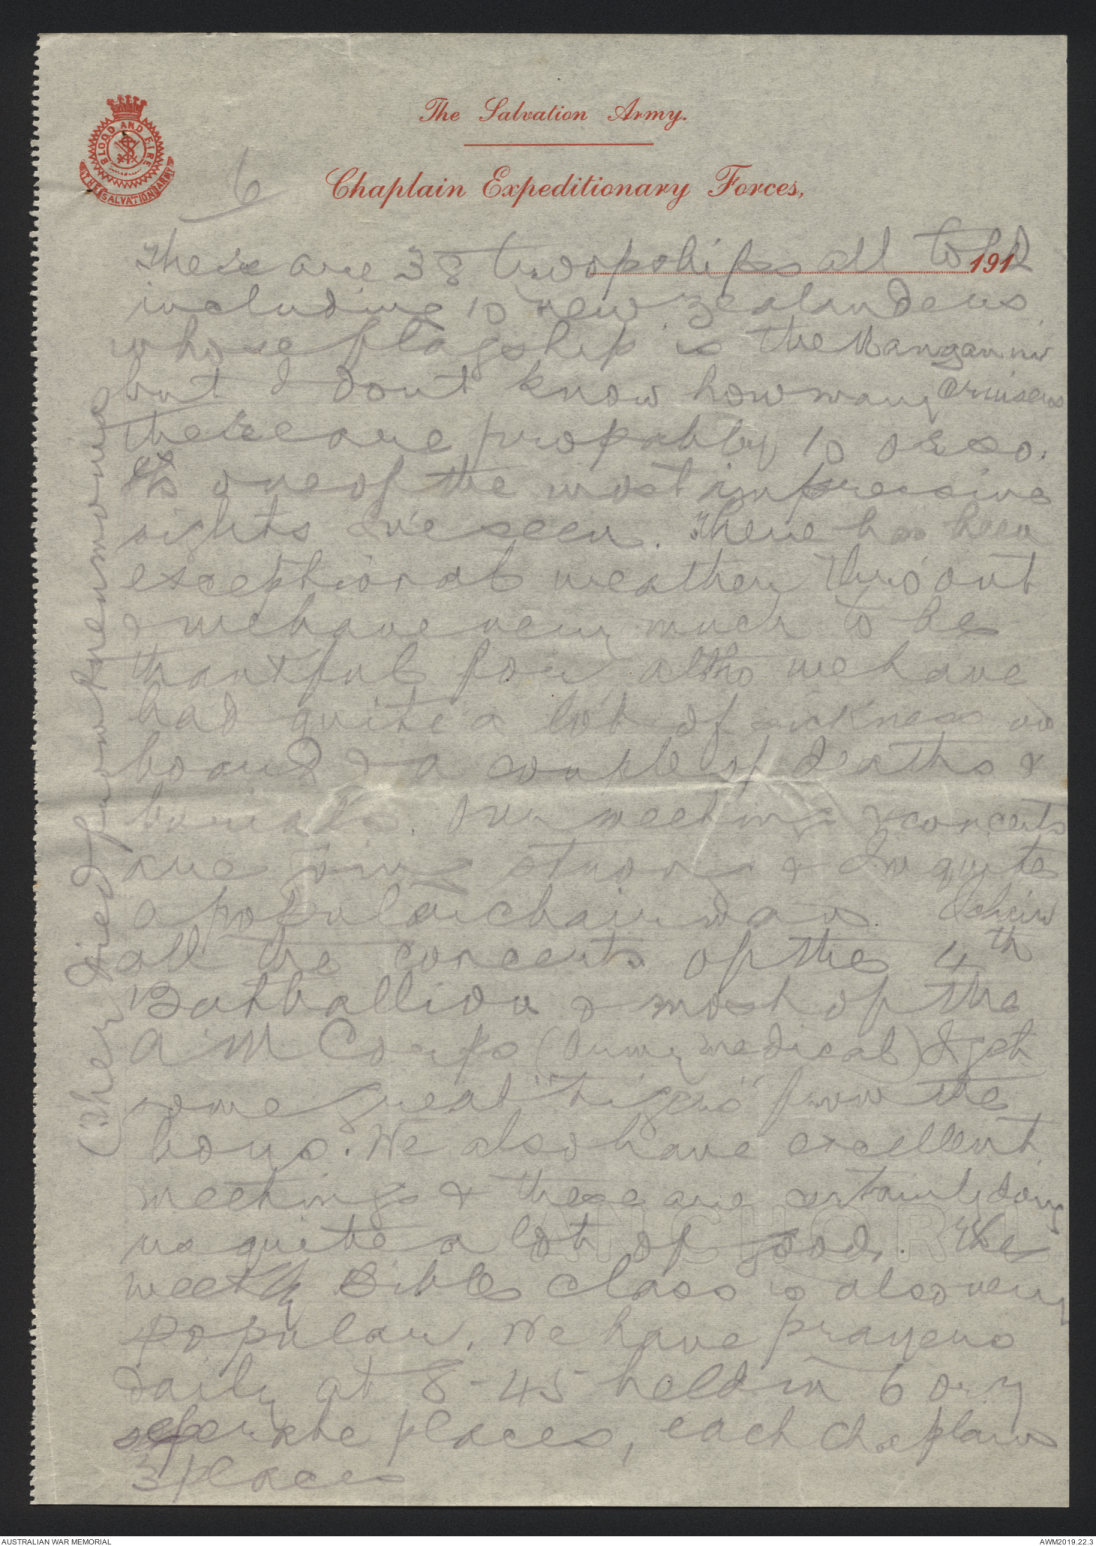 The Salvation Army.
Chaplain Expeditionary Forces,
BLOOD AND FIRE
THE SALVATION ARMY
6
191
There are 38 troopships all told
including 10 new zealanders
whose flagship is the
but I dont know how many cruisers
there are probably 10 or so.
Its one of the most impressive
sights I've seen. There has been
exceptional weather thro'out
& we have very much to be
thankful for altho we have
had quite a lot of sickness on
board & a couple of deaths &
burials. Our meetings & concerts
are going strong & I'm quite
a popular chairman. I chair
all the concerts of the 4th
Battallion & most of the
A M Corps (Army medical) I get
some great "tigers" from the
boys. We also have excellent
meetings & these are certainly doing
us quite a lot of good. The
weekly Bible class is also very
popular. We have prayers
daily at 8-45 held in 6 or 7
seperate places, each chaplain
3 places
(Ther died from pneumonia
ANCHOR
AUSTRALIAN WAR MEMORIAL
AWM2019.22.3